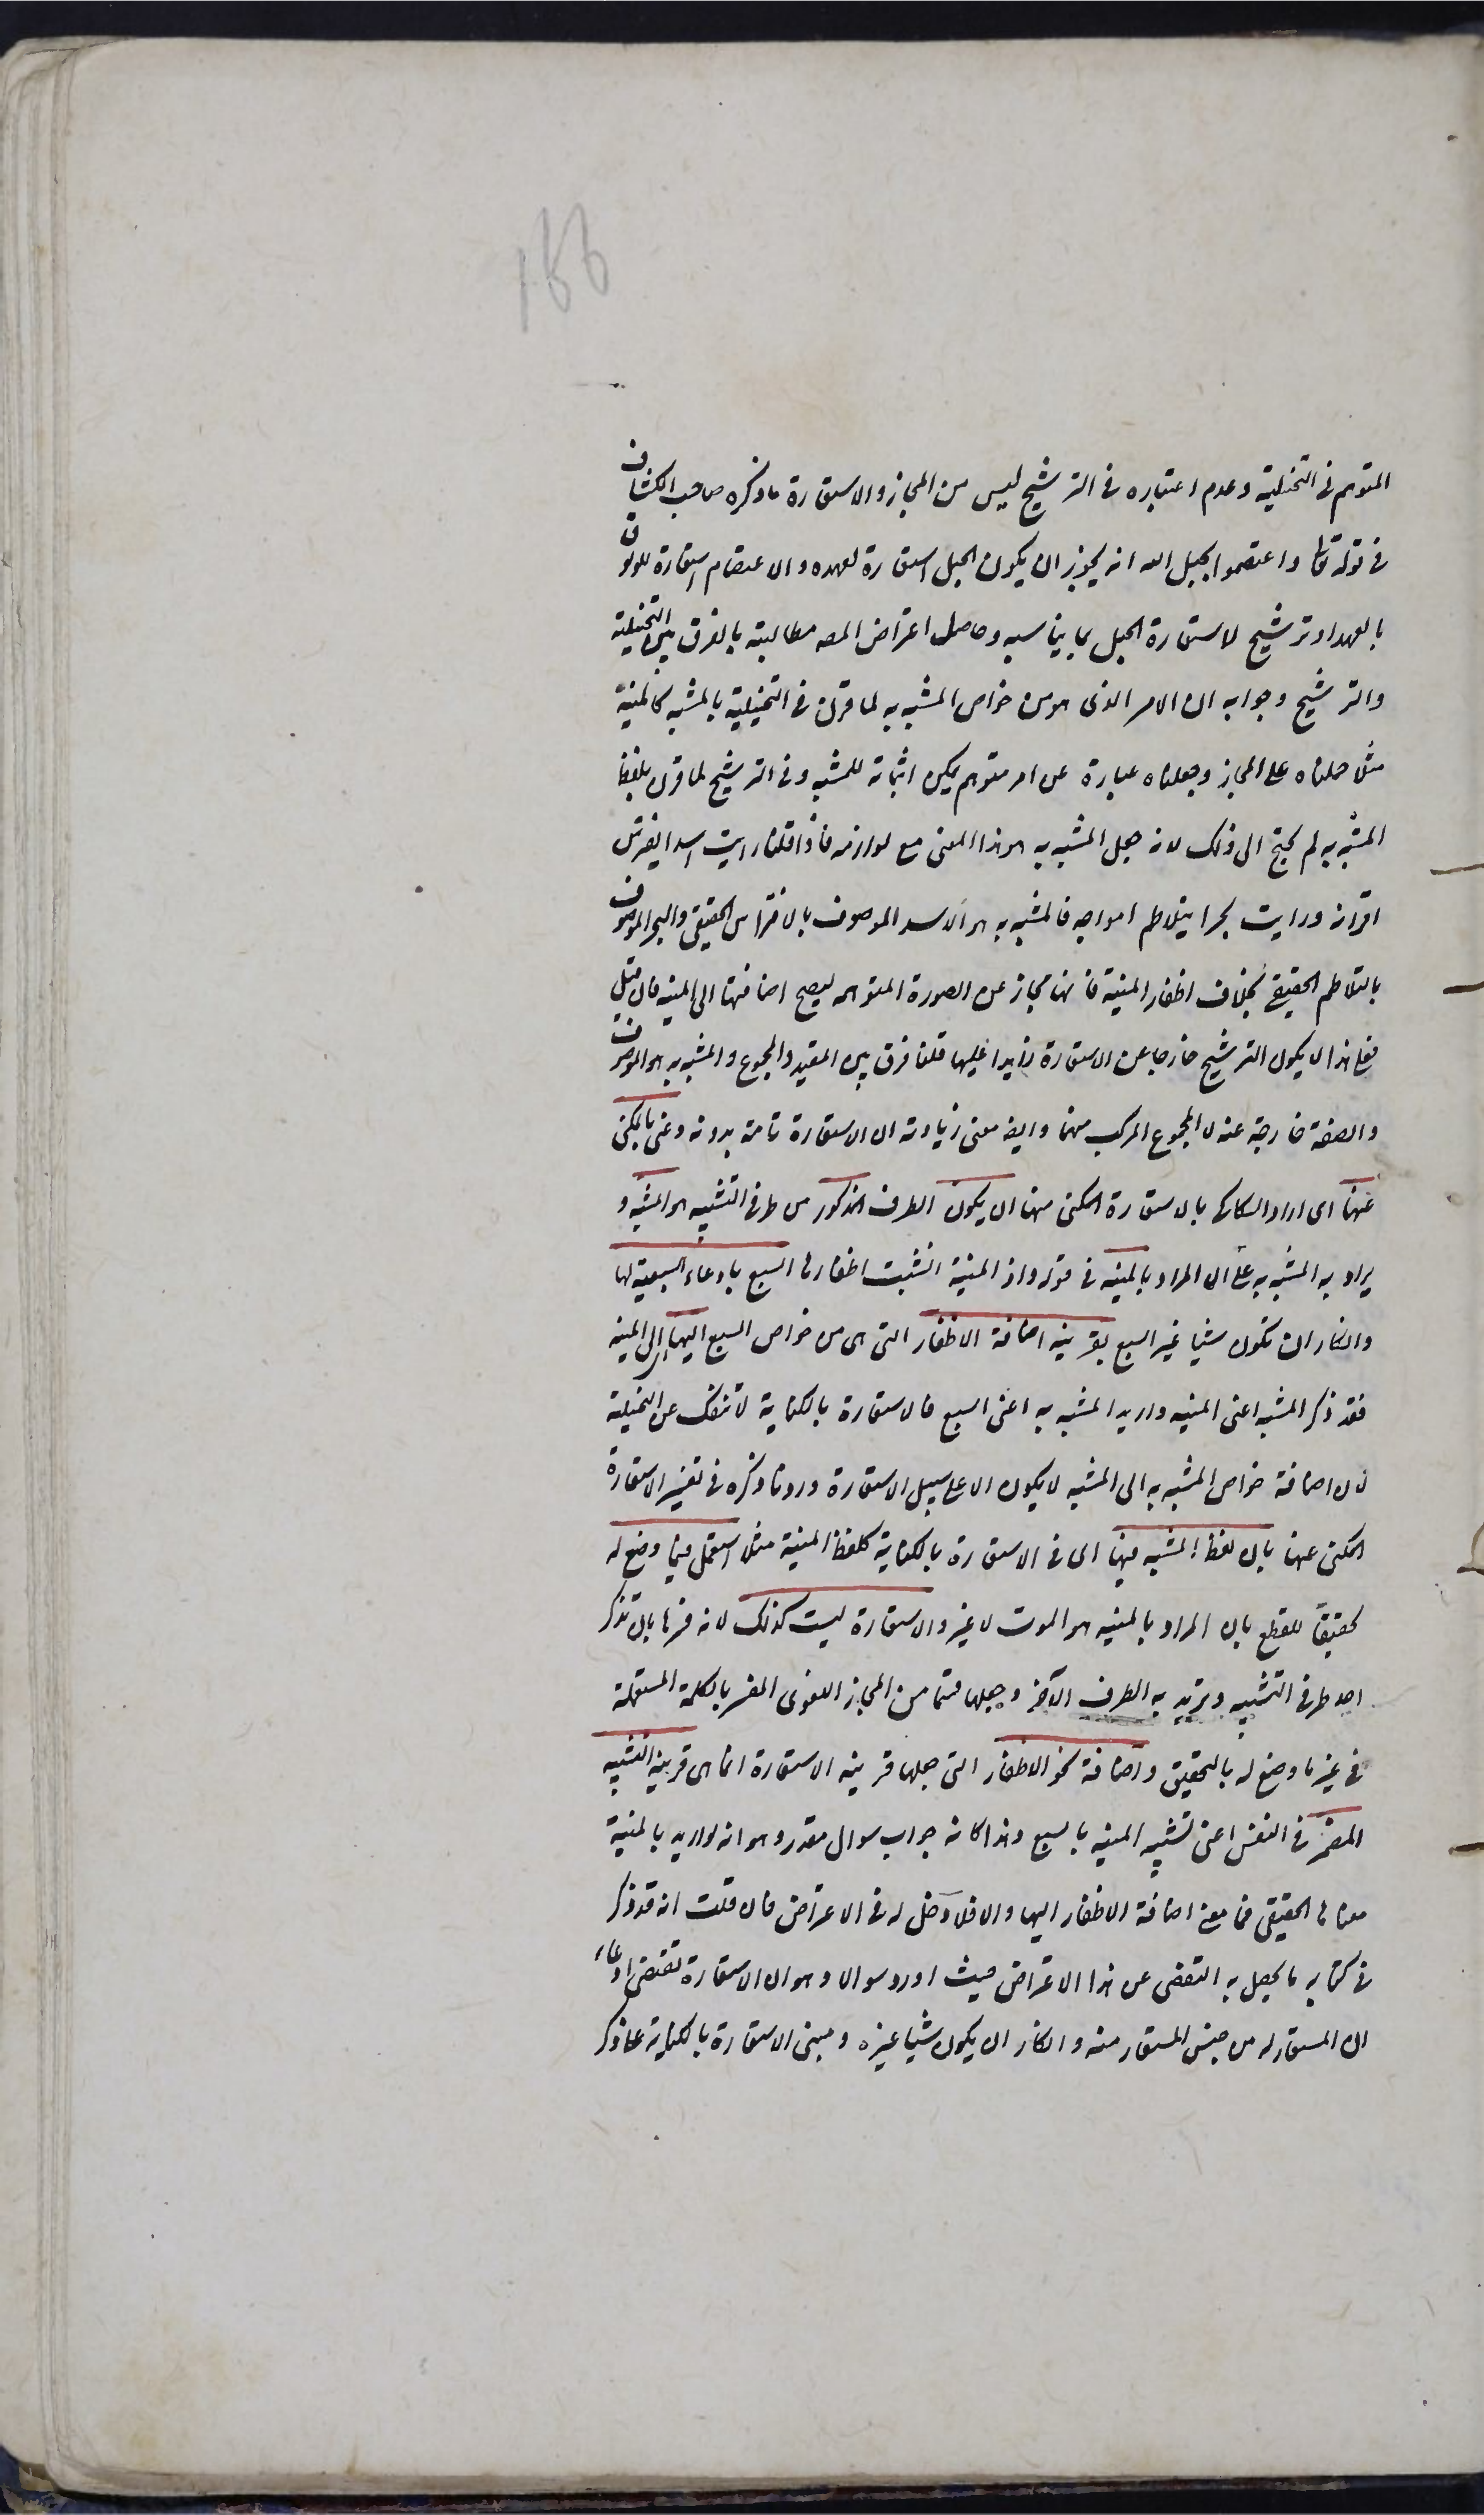 166
المتوهم فى التخييلية وعدم اعتباره فى الترشيح ليس من المجاز والاستعارة ما ذكره صاحب الكشاف
فى قوله تعا واعتصموا بحبل الله انه يجوز ان يكون الحبل استعارة لعهده والاعتصام استعارة للوثوق
بالعهد او ترشيح لاستعارة الحبل بما يناسبه وحاصل اعتراض المصه مطالبته بالفرق بين التخييلية
والترشيح وجوابه ان الامر الذى هو من خواص المشبه به لما قرن فى التخييلية بالمشبه كالمنية
مثلا حملناه على المجاز وجعلناه عبارة عن امر متوهم يمكن اثباته للمشبه وفى الترشيح لما قرن بلفظ
المشبه به لم يحتج الى ذلك لانه جعل المشبه به هو هذا المعنى مع لوازمه فاذا قلنا رايت اسدا يفترس
اقرانه ورايت بحرا يتلاطم امواجه فالمشبه به هو الاسد الموصوف بالافتراس الحقيقى والبحر الموصوف
بالتلاطم الحقيقى بخلاف اظفار المنية فانها مجاز عن الصورة المتوهمه ليصح اضافتها الى المنيه فان قيل
فعلى هذا لا يكون الترشيح خارجا عن الاستعارة زايدا عليها قلنا فرق بين المقيد والمجموع والمشبه به هو الموصوف
والصفة خارجة عنه لا المجموع المركب منهما وايضه معنى زيادته ان الاستعارة تامة بدونه وعنى بالمكنى
عنها اى اراد السكاكى بالاستعارة المكنى عنها ان يكون الطرف المذكور من طرفى التشبيه هو المشبه و
يراد به المشبه به على ان المراد بالمنيه فى قوله واذ المنية انشبت اظفارها السبع بادعاء السبعية لها
وانكار ان تكون شيئا غير السبع بقرينه اضافة الاظفار التى هى من خواص السبع اليها اى الى المنيه
فقد ذكر المشبه اعنى المنيه واريد المشبه به اعنى السبع فالاستعارة بالكناية لا تنفك عن التخييلية
لان اضافة خواص المشبه به الى المشبه لا يكون الا على سبيل الاستعارة ورد ما ذكره فى تفسير الاستعارة
المكنى عنها بان لفظ المشبه فيها اى فى الاستعارة بالكناية كلفظ المنية مثلا استعمل فيما وضع له
تحقيقا للقطع بان المراد بالمنيه هو الموت لا غير والاستعارة ليست كذلك لانه فسرها بان تذكر
احد طرفى التشبيه وتريد به الطرف الآخر وجعلها قسما من المجاز اللغوى المفسر بالكلمة المستعملة
فى غير ما وضع له بالتحقيق واضافة نحو الاظفار التى جعلها قرينه الاستعارة انما هى قرينه التشبيه
المضمر فى النفس اعنى تشبيه المنيه بالسبع وهذا كانه جواب سوال مقدر وهو انه لو اريد بالمنية
معناها الحقيقى فما معنى اضافة الاظفار اليها والا فلا دخل له فى الاعتراض فان قلت انه قد ذكر
فى كتابه ما يحصل به التفصى عن هذا الاعتراض حيث اورد سوالا وهو ان الاستعارة تقتضى ادعاء
ان المستعار له من جنس المستعار منه وانكار ان يكون شيئا غيره ومبنى الاستعارة بالكناية على ذكر